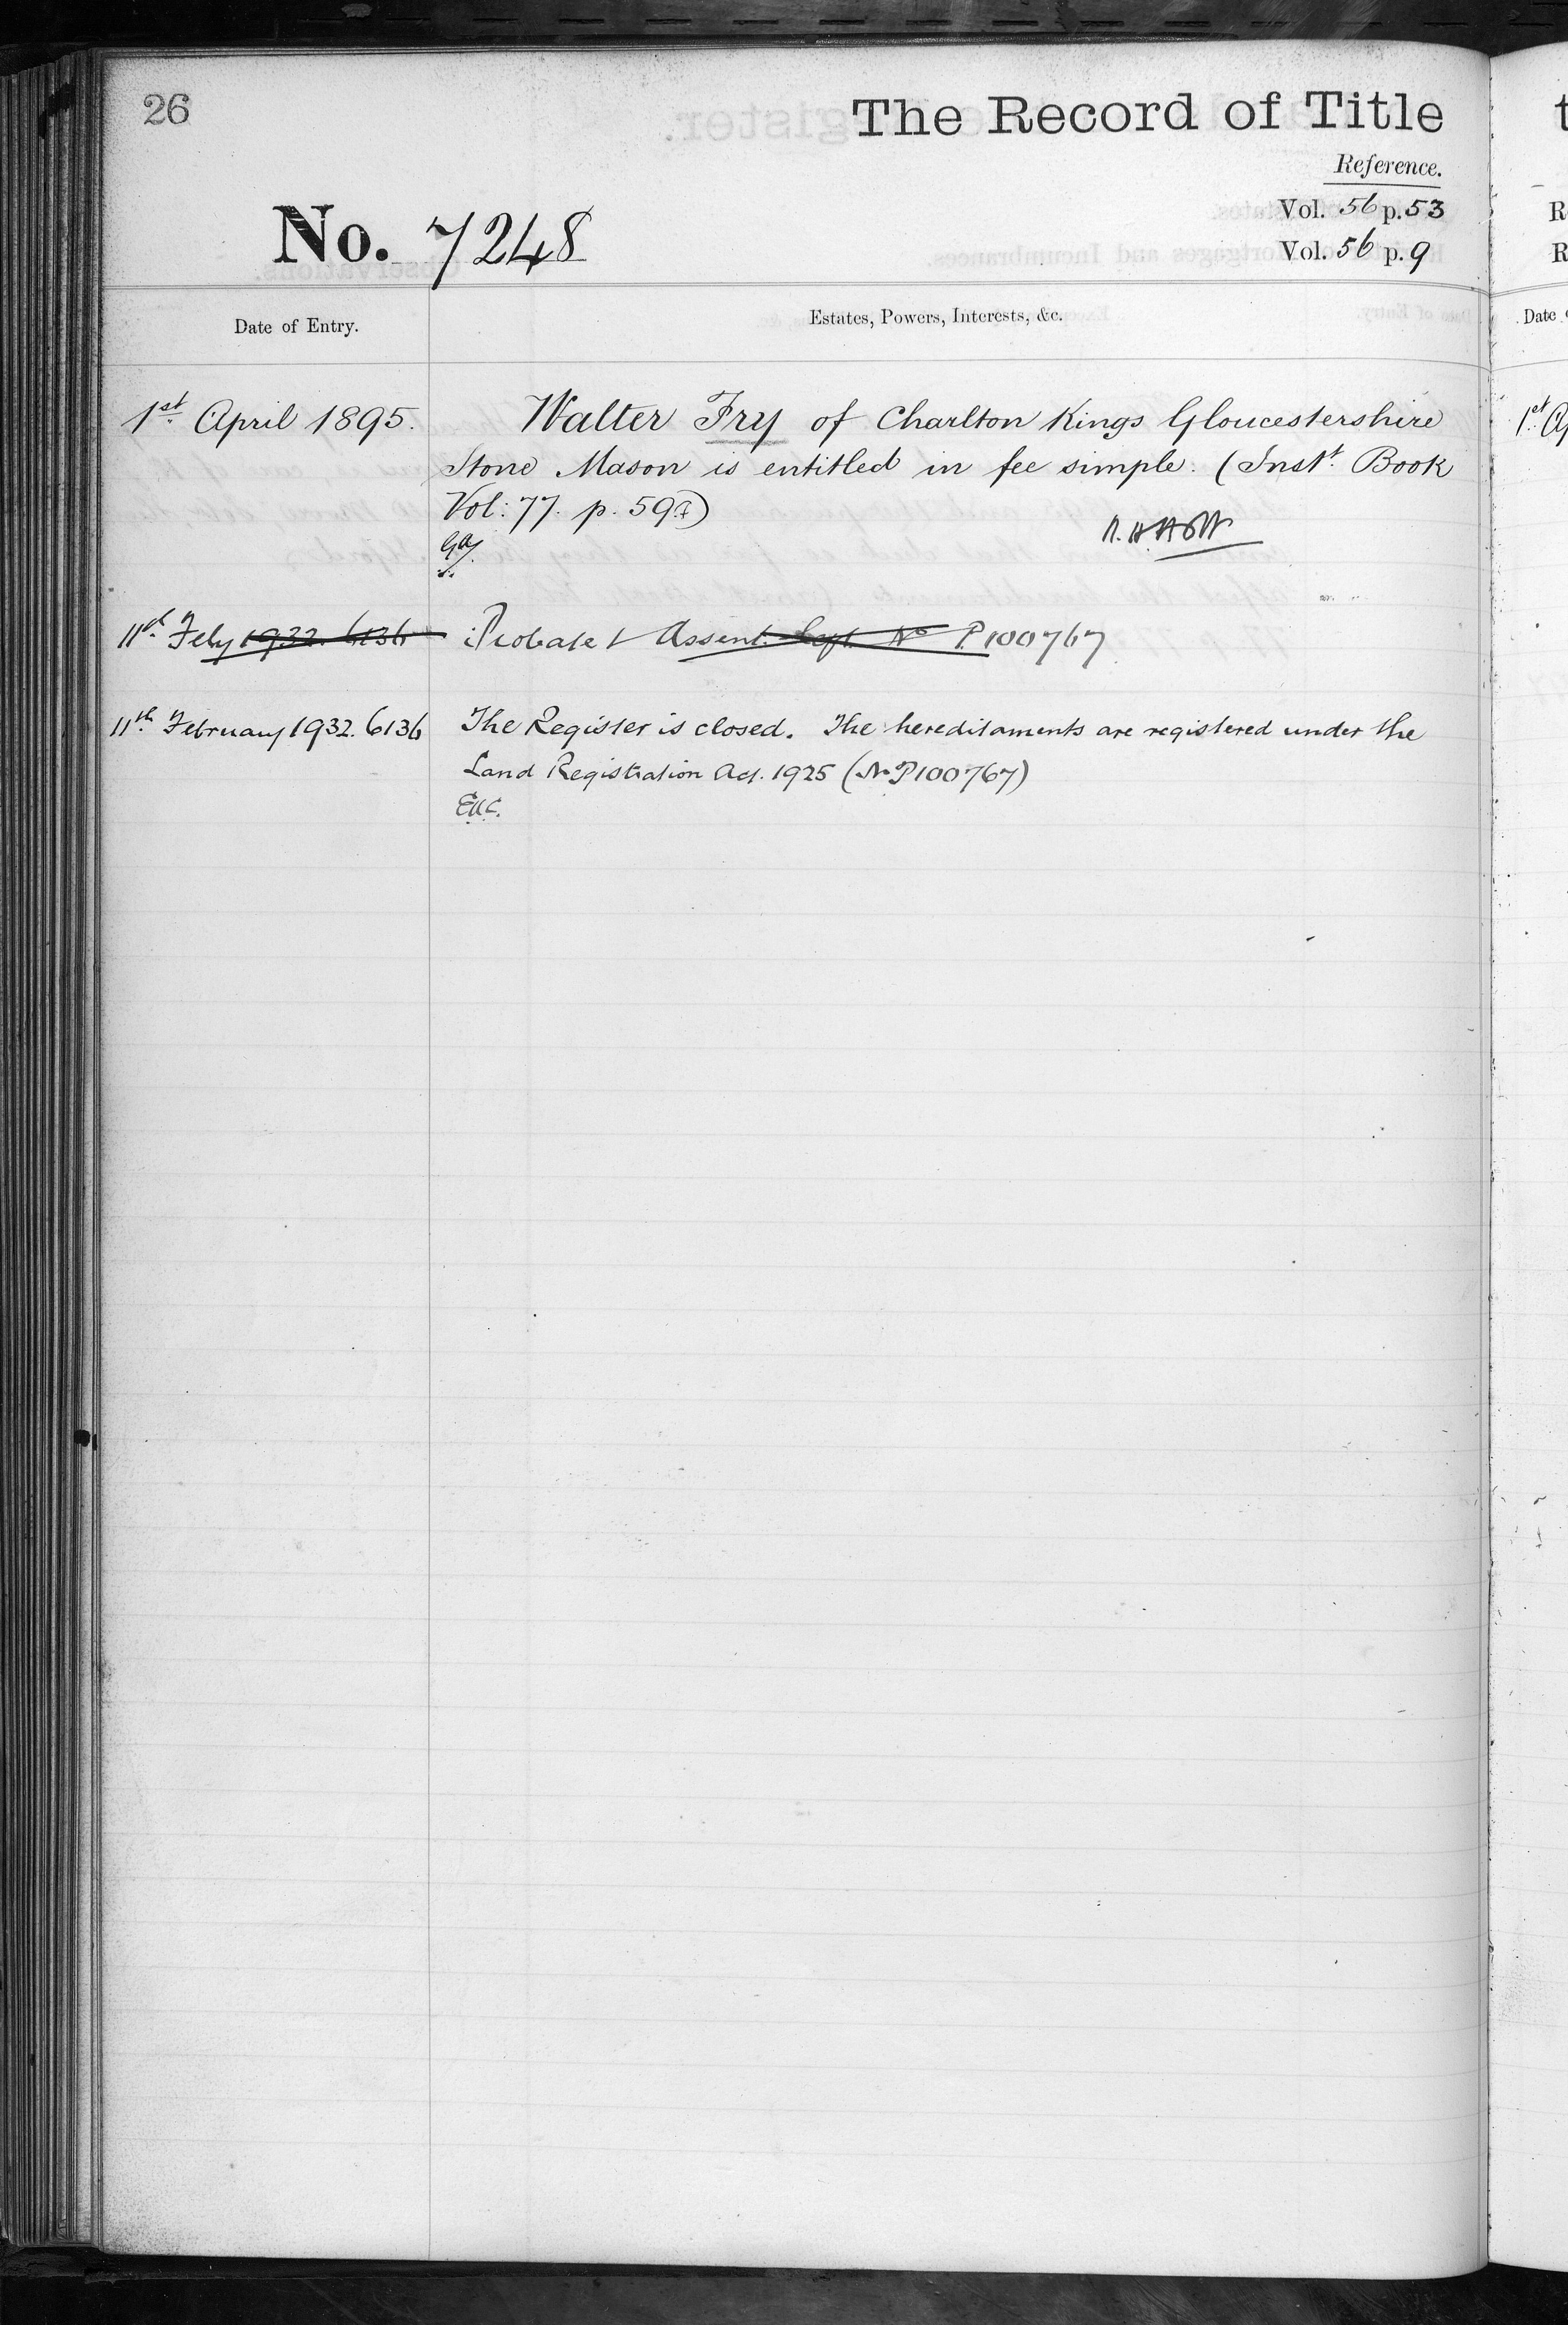 26
The Record of Title
Reference.
Vol. 56 p. 53
No. 7248
Vol. 56 p. 9
Date of Entry.
Estates, Powers, Interests, &c.
1st April 1895.
Walter Fry of Charlton Kings Gloucestershire
Stone Mason is entitled in fee simple. (Inst. Book
Vol: 77. p. 597)
11th Feby 1932. 6136
Probate & Assent. Dept No P.100767
11th February 1932. 6136
The Register is closed. The hereditaments are registered under the
Land Registration Act. 1925 (No P100767)
Date
1st Ap